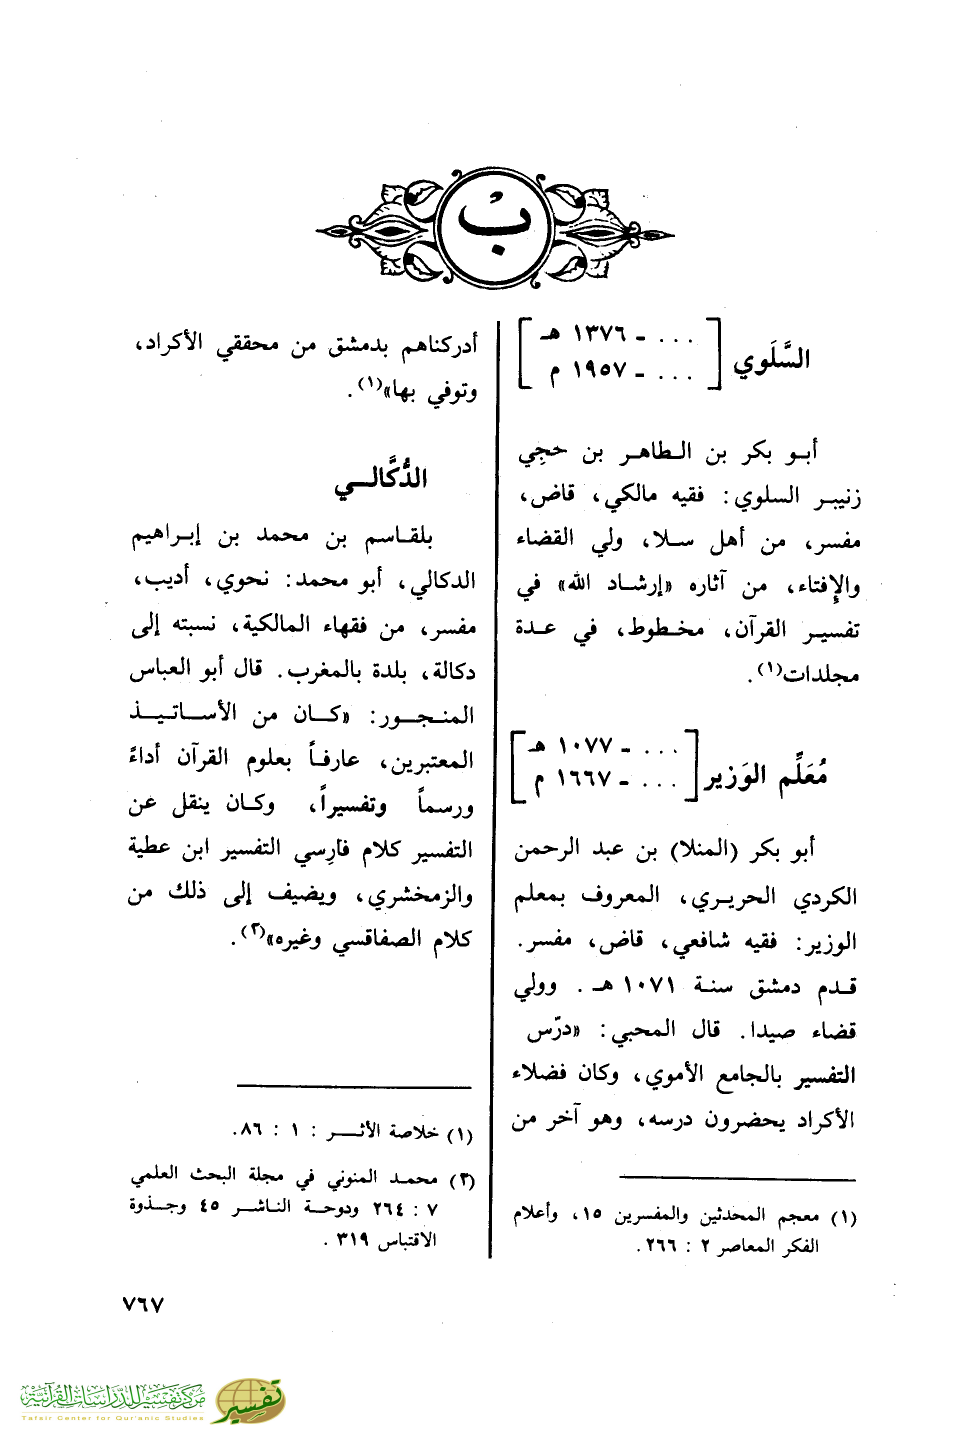 بُ
السَّلَوي
... ـ ١٣٧٦ هـ
... ـ ١٩٥٧ م
أبـو بكر بن الـطاهـر بن حجِي
زنيبـر السلوي: فقيه مالكي، قاض،
مفسر، من أهل سـلا، ولي القضاء
والإِفتاء، من آثاره «إرشـاد الله» في
تفسيـر القرآن، مخـطوط، في عـدة
مجلدات(١).
مُعَلِّم الوَزير
... ـ ١٠٧٧ هـ
... ـ ١٦٦٧ م
أبو بكر (المنلا) بن عبد الرحمن
الكردي الحريـري، المعروف بمعلم
الوزير: فقيه شافعي، قاض، مفسر.
قـدم دمشق سنـة ١٠٧١ هـ. وولي
قضاء صيدا. قال المحبي: «درّس
التفسير بالجامع الأموي، وكان فضلاء
الأكراد يحضرون درسه، وهو آخر من
(١) معجم المحدثين والمفسرين ١٥، وأعلام
الفكر المعاصر ٢ : ٢٦٦.
أدركناهم بدمشق من محققي الأكراد،
وتوفي بها»(١).
الدُّكَّالــي
بلقـاسم بن محمد بن إبـراهيم
الدكالي، أبو محمد: نحوي، أديب،
مفسر، من فقهاء المالكية، نسبته إلى
دكالة، بلدة بالمغرب. قال أبو العباس
المنـجـور: «كـان من الأسـاتـيـذ
المعتبرين، عارفـاً بعلوم القرآن أداءً
ورسماً وتفسيراً، وكـان ينقل عن
التفسير كلام فارِسي التفسير ابن عطية
والزمخشري، ويضيف إلى ذلك من
كلام الصفاقسي وغيره»(٢).
(١) خلاصة الأثـر : ١ : ٨٦.
(٢) محمـد المنوني في مجلة البحث العلمي
٧ : ٢٦٤ ودوحـة الناشـر ٤٥ وجـذوة
الاقتباس ٣١٩.
٧٦٧
مركز تفسير للدراسات القرآنية
Tafsir Center for Qur'anic Studies
تفسير